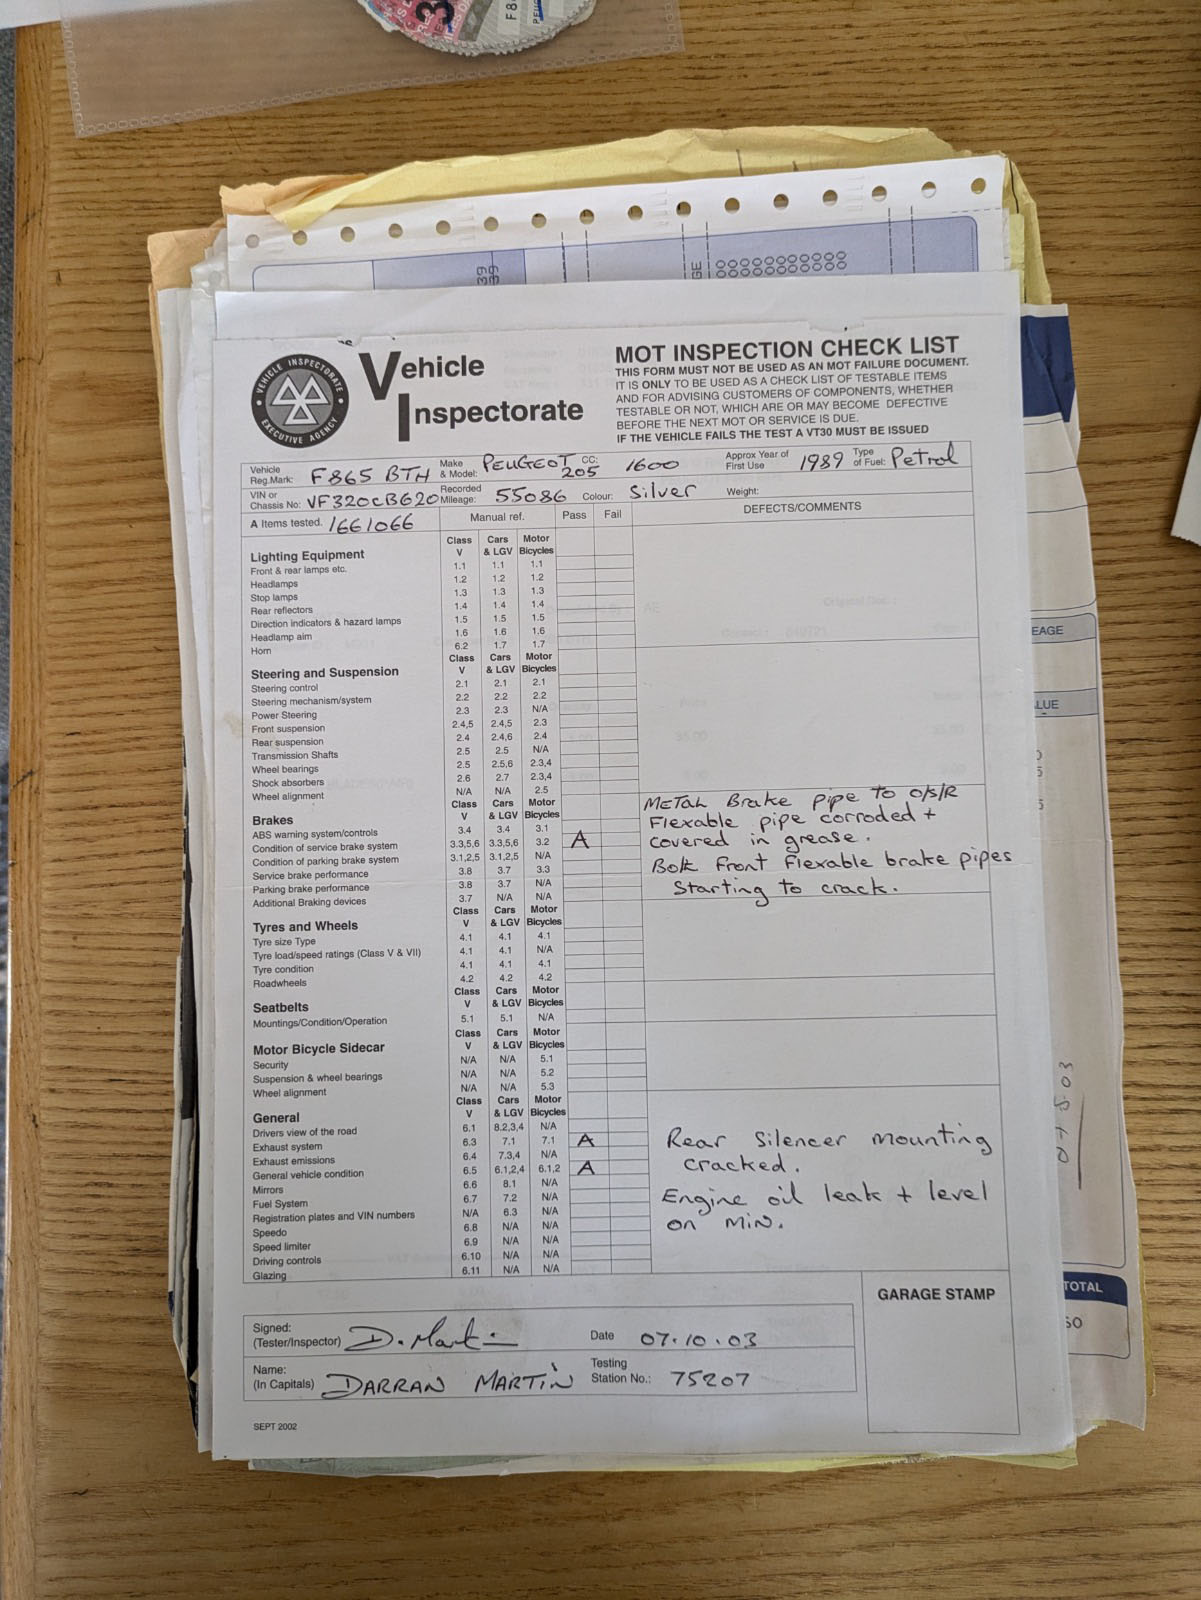 F8
VEHICLE INSPECTORATE
EXECUTIVE AGENCY
Vehicle
Inspectorate
MOT INSPECTION CHECK LIST
THIS FORM MUST NOT BE USED AS AN MOT FAILURE DOCUMENT.
IT IS ONLY TO BE USED AS A CHECK LIST OF TESTABLE ITEMS
AND FOR ADVISING CUSTOMERS OF COMPONENTS, WHETHER
TESTABLE OR NOT, WHICH ARE OR MAY BECOME DEFECTIVE
BEFORE THE NEXT MOT OR SERVICE IS DUE.
IF THE VEHICLE FAILS THE TEST A VT30 MUST BE ISSUED
Vehicle Reg.Mark: F865 BTH Make & Model: PEUGEOT 205 CC: 1600 Approx Year of First Use 1989 Type of Fuel: Petrol
VIN or Chassis No: VF320CB620 Recorded Mileage: 55086 Colour: Silver Weight:
A Items tested. 1661066 Manual ref. Pass Fail DEFECTS/COMMENTS
Lighting Equipment Class V Cars & LGV Motor Bicycles
Front & rear lamps etc. 1.1 1.1 1.1
Headlamps 1.2 1.2 1.2
Stop lamps 1.3 1.3 1.3
Rear reflectors 1.4 1.4 1.4
Direction indicators & hazard lamps 1.5 1.5 1.5
Headlamp aim 1.6 1.6 1.6
Horn 6.2 1.7 1.7
Steering and Suspension Class V Cars & LGV Motor Bicycles
Steering control 2.1 2.1 2.1
Steering mechanism/system 2.2 2.2 2.2
Power Steering 2.3 2.3 N/A
Front suspension 2.4,5 2.4,5 2.3
Rear suspension 2.4 2.4,6 2.4
Transmission Shafts 2.5 2.5 N/A
Wheel bearings 2.5 2.5,6 2.3,4
Shock absorbers 2.6 2.7 2.3,4
Wheel alignment N/A N/A 2.5
Brakes Class V Cars & LGV Motor Bicycles
ABS warning system/controls 3.4 3.4 3.1
Condition of service brake system 3.3,5,6 3.3,5,6 3.2 A
Condition of parking brake system 3.1,2,5 3.1,2,5 N/A
Service brake performance 3.8 3.7 3.3
Parking brake performance 3.8 3.7 N/A
Additional Braking devices 3.7 N/A N/A
Metal Brake pipe to O/S/R
Flexable pipe corroded +
covered in grease.
Both Front Flexable brake pipes
Starting to crack.
Tyres and Wheels Class V Cars & LGV Motor Bicycles
Tyre size Type 4.1 4.1 4.1
Tyre load/speed ratings (Class V & VII) 4.1 4.1 N/A
Tyre condition 4.1 4.1 4.1
Roadwheels 4.2 4.2 4.2
Seatbelts Class V Cars & LGV Motor Bicycles
Mountings/Condition/Operation 5.1 5.1 N/A
Motor Bicycle Sidecar Class V Cars & LGV Motor Bicycles
Security N/A N/A 5.1
Suspension & wheel bearings N/A N/A 5.2
Wheel alignment N/A N/A 5.3
General Class V Cars & LGV Motor Bicycles
Drivers view of the road 6.1 8.2,3,4 N/A
Exhaust system 6.3 7.1 7.1 A
Exhaust emissions 6.4 7.3,4 N/A
General vehicle condition 6.5 6.1,2,4 6.1,2 A
Mirrors 6.6 8.1 N/A
Fuel System 6.7 7.2 N/A
Registration plates and VIN numbers N/A 6.3 N/A
Speedo 6.8 N/A N/A
Speed limiter 6.9 N/A N/A
Driving controls 6.10 N/A N/A
Glazing 6.11 N/A N/A
Rear Silencer mounting
cracked.
Engine oil leak + level
on MIN.
GARAGE STAMP
Signed: (Tester/Inspector) D. Martin Date 07.10.03
Name: (In Capitals) DARRAN MARTIN Testing Station No.: 75207
SEPT 2002
EAGE
LUE
TOTAL
50